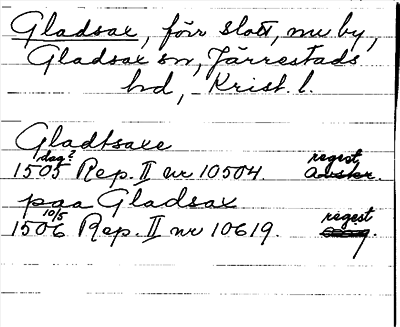 Gladsax, förr slott, nu by,
Gladsax sn, Järrestads
hd, Krist. l.
Gladtsaxe
dag?
1505 Rep. II nr 10504 regest
avskr.
paa Gladsax
10/5
1506 Rep. II nr 10619. regest